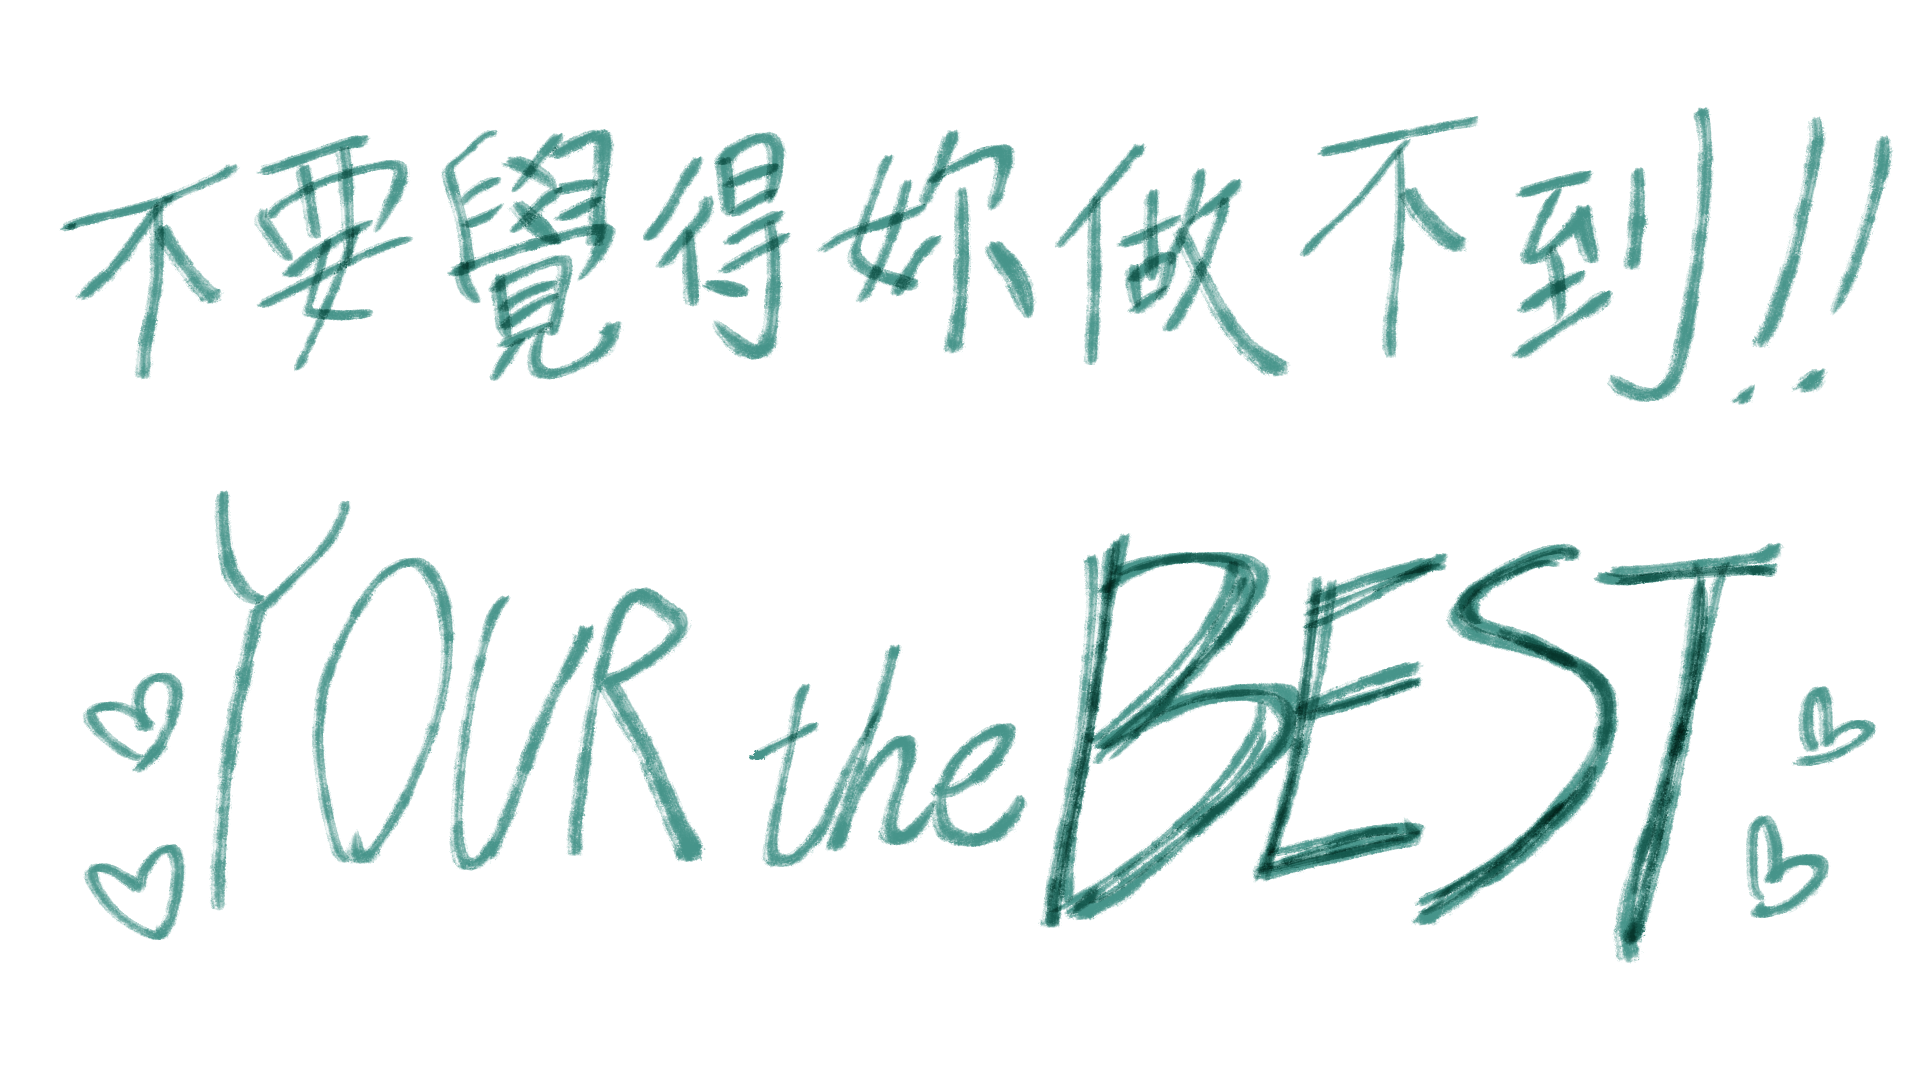 不要覺得妳做不到!!
YOUR the BEST